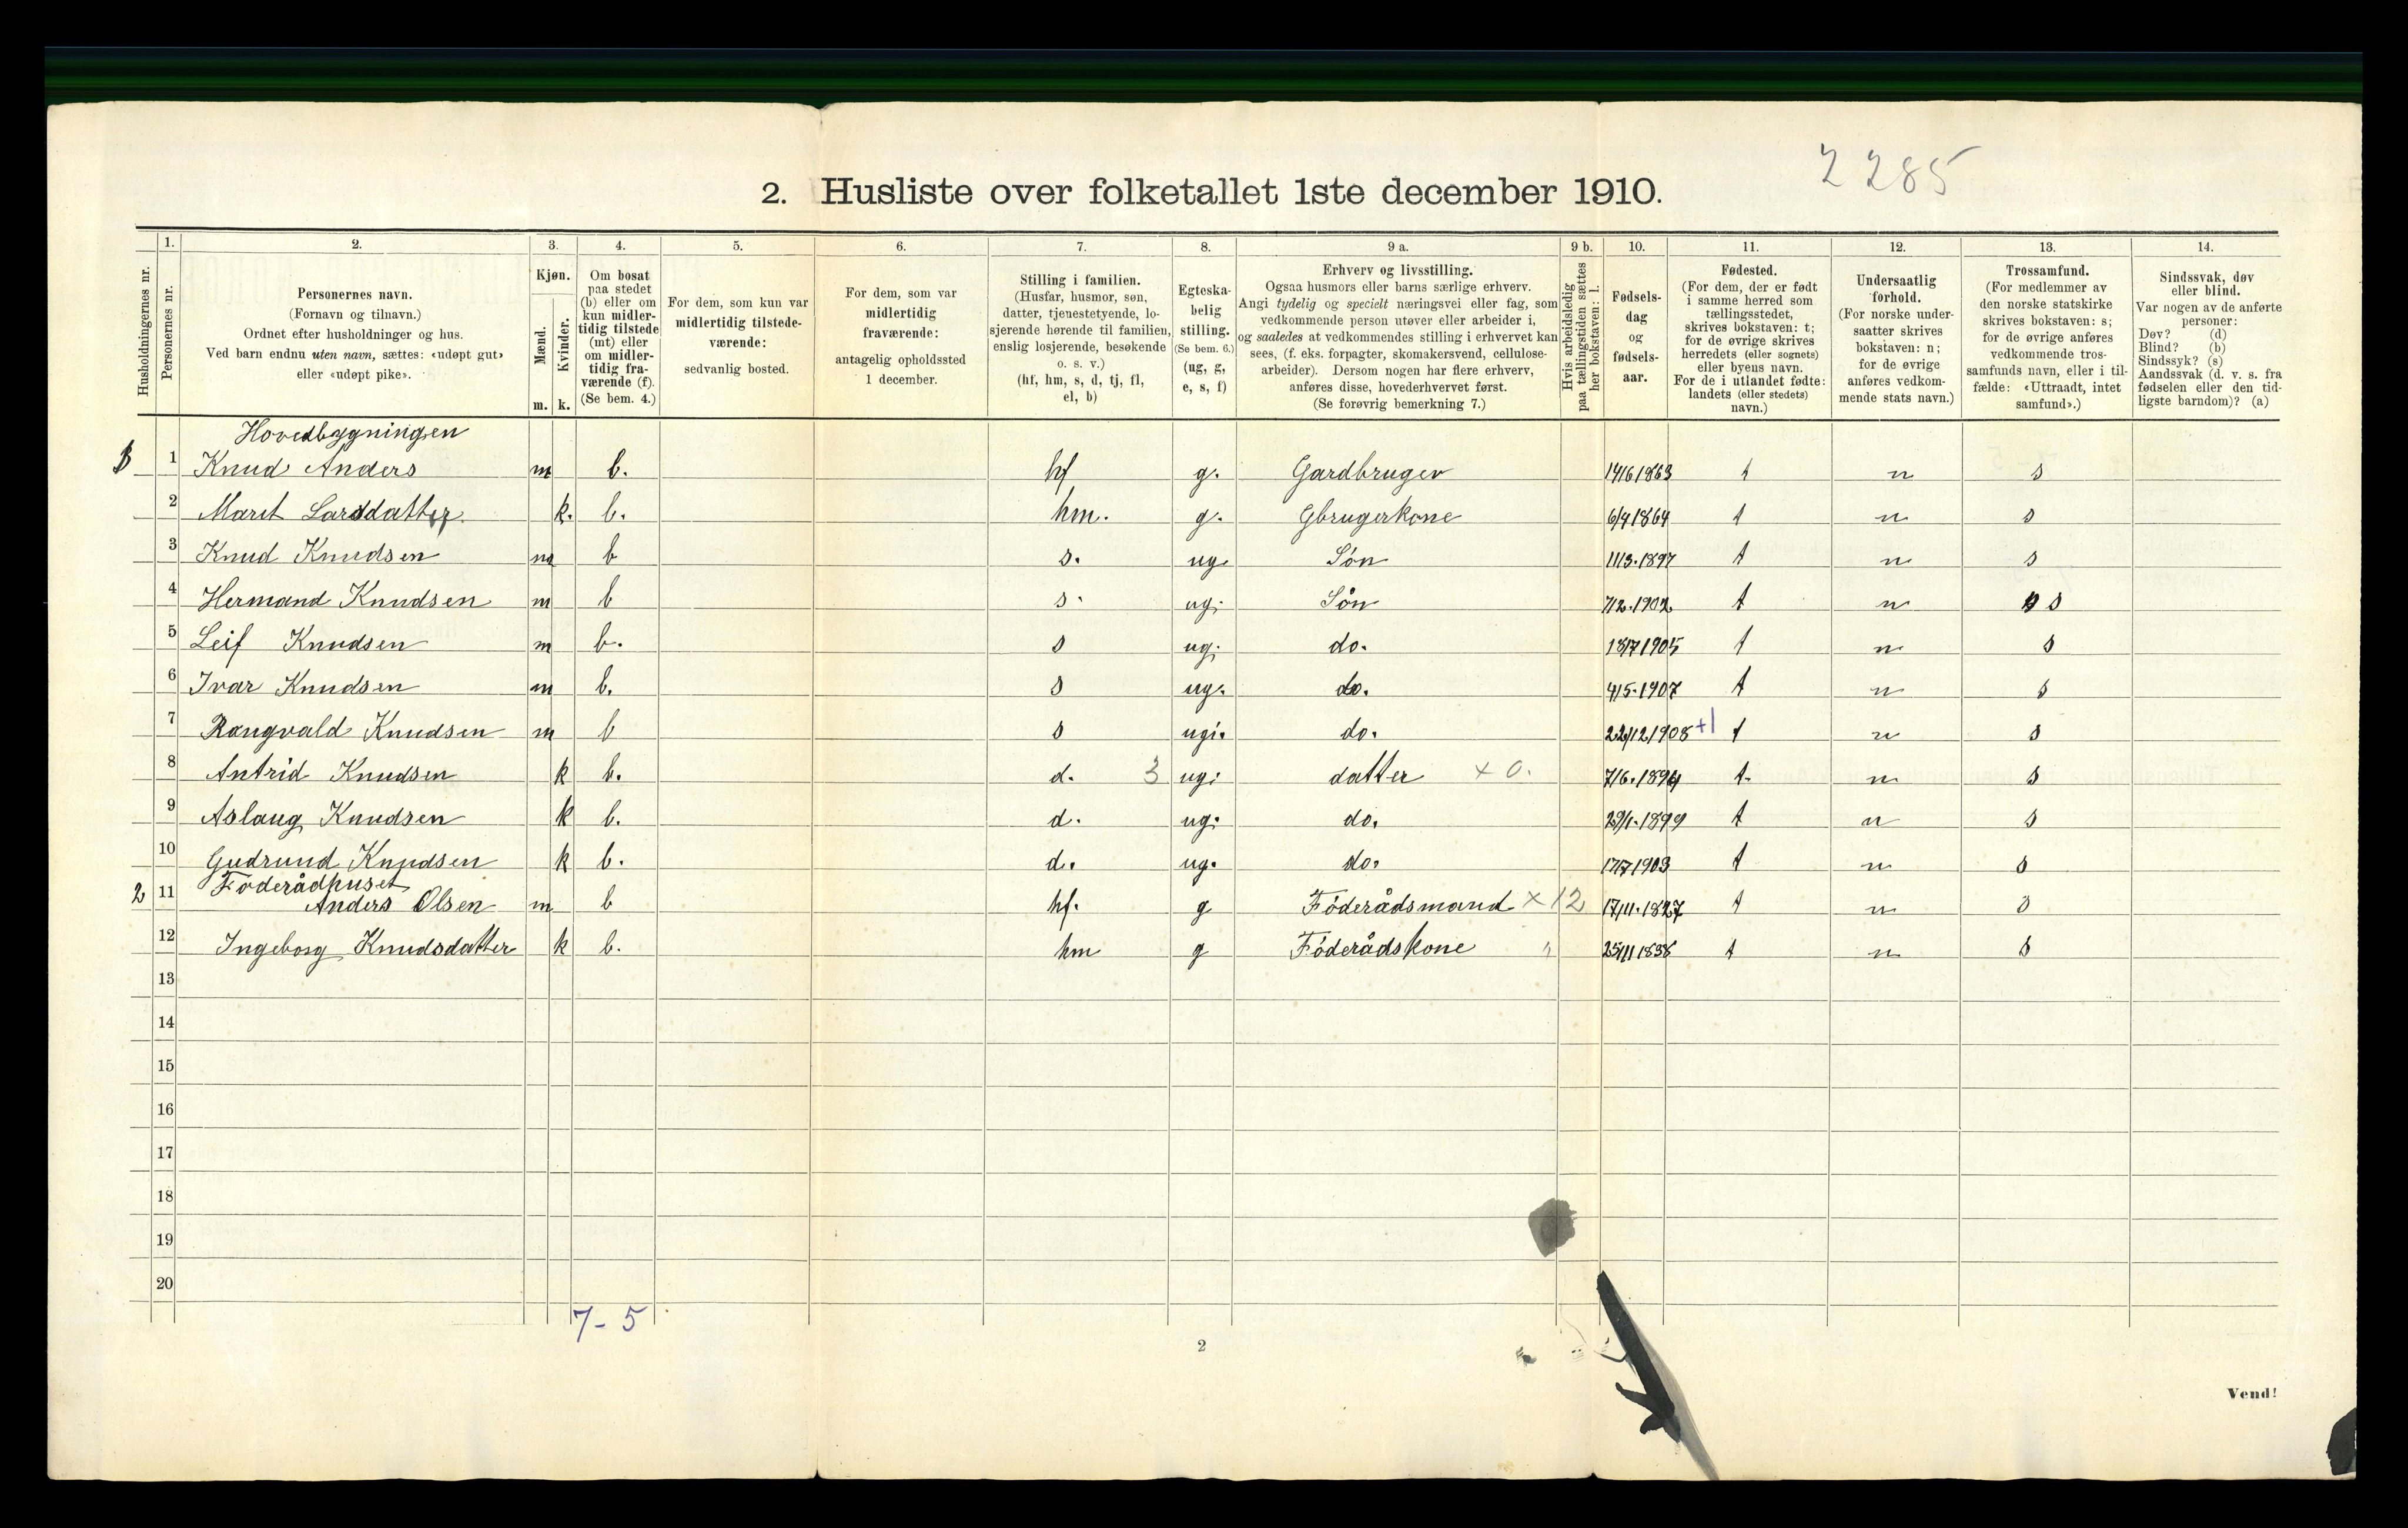 2285
2. Husliste over folketallet 1ste december 1910.
Husholdningernes nr.
1.
Personernes nr.
2.
Personernes navn.
(Fornavn og tilnavn.)
Ordnet efter husholdninger og hus.
Ved barn endnu uten navn, sættes: «udøpt gut»
eller «udøpt pike».
3.
Kjøn.
Mænd.
Kvinder.
m. k.
4.
Om bosat
paa stedet
(b) eller om
kun midler-
tidig tilstede
(mt) eller
om midler-
tidig fra-
værende (f).
(Se bem. 4.)
5.
For dem, som kun var
midlertidig tilstede-
værende:
sedvanlig bosted.
6.
For dem, som var
midlertidig
fraværende:
antagelig opholdssted
1 december.
7.
Stilling i familien.
(Husfar, husmor, søn,
datter, tjenestetyende, lo-
sjerende hørende til familien,
enslig losjerende, besøkende
o. s. v.)
(hf, hm, s, d, tj, fl,
el, b)
8.
Egteska-
belig
stilling.
(Se bem. 6.)
(ug, g,
e, s, f)
9 a.
Erhverv og livsstilling.
Ogsaa husmors eller barns særlige erhverv.
Angi tydelig og specielt næringsvei eller fag, som
vedkommende person utøver eller arbeider i,
og saaledes at vedkommendes stilling i erhvervet kan
sees, (f. eks. forpagter, skomakersvend, cellulose-
arbeider). Dersom nogen har flere erhverv,
anføres disse, hovederhvervet først.
(Se forøvrig bemerkning 7.)
9 b.
Hvis arbeidsledig
paa tællingstiden sættes
her bokstaven: l.
10.
Fødsels-
dag
og
fødsels-
aar.
11.
Fødested.
(For dem, der er født
i samme herred som
tællingsstedet,
skrives bokstaven: t;
for de øvrige skrives
herredets (eller sognets)
eller byens navn.
For de i utlandet fødte:
landets (eller stedets)
navn.)
12.
Undersaatlig
forhold.
(For norske under-
saatter skrives
bokstaven: n;
for de øvrige
anføres vedkom-
mende stats navn.)
13.
Trossamfund.
(For medlemmer av
den norske statskirke
skrives bokstaven: s;
for de øvrige anføres
vedkommende tros-
samfunds navn, eller i til-
fælde: «Uttraadt, intet
samfund».)
14.
Sindssvak, døv
eller blind.
Var nogen av de anførte
personer:
Døv? (d)
Blind? (b)
Sindssyk? (s)
Aandssvak (d. v. s. fra
fødselen eller den tid-
ligste barndom)? (a)
Hovedbygningen
1 1 Knud Anders m b. hf g. Gardbruger 14/6 1863 t n s
2 Marit Larsdatter k. b. hm. g. Gbrugerkone 6/4 1864 t n s
3 Knud Knudsen m b s. ug. Søn 11/3.1897 t n s
4 Hermand Knudsen m b s. ug. Søn 7/2.1902 t n s
5 Leif Knudsen m b. s ug. do. 18/7 1905 t n s
6 Ivar Knudsen m b. s ug. do. 4/5.1907 t n s
7 Rangvald Knudsen m b s ug. do. 22/12 1908 +1 t n s
8 Antrid Knudsen k b. d. 3 ug. datter x 0. 7/6.1894 t. n s
9 Aslaug Knudsen k b. d. ug. do. 29/1.1899 t n s
10 Gudrund Knudsen k b. d. ug. do. 17/7 1903 t n s
Föderådhuset
2 11 Anders Olsen m b hf. g Föderådsmand x 12 17/11.1827 t n s
12 Ingeborg Knudsdatter k b. hm g Föderådskone " 25/11 1838 t n s
13
14
15
16
17
18
19
20
7-5
2
Vend!